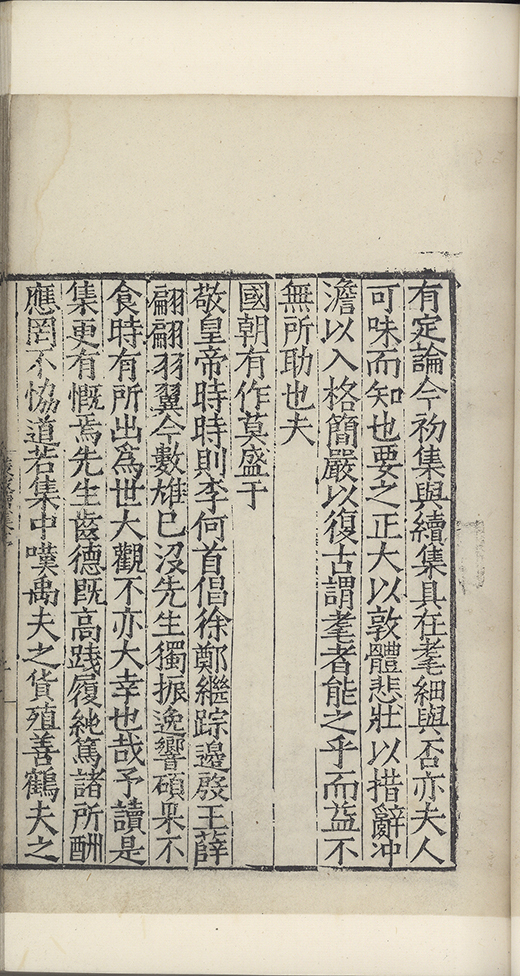 有定論今初集與續集具在耄細與否亦夫人
可味而知也要之正大以敦體悲壯以措辭冲
澹以入格簡嚴以復古謂耄者能之乎而益不
無所助也夫
國朝有作莫盛于
敬皇帝時時則李何首倡徐鄭繼踪邊殷王薛
翩翩羽翼今數雄已沒先生獨振逸響碩果不
食時有所出為世大觀不亦大幸也哉予讀是
集更有慨焉先生齒德既高踐履純篤諸所酬
應罔不恊道若集中嘆禹夫之貨殖善鶴夫之